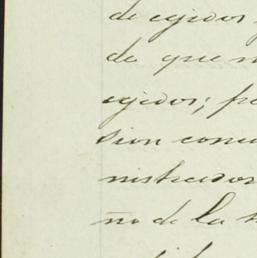 de egidos
do que
egidos; pa
sion conc
nistrados
no de la